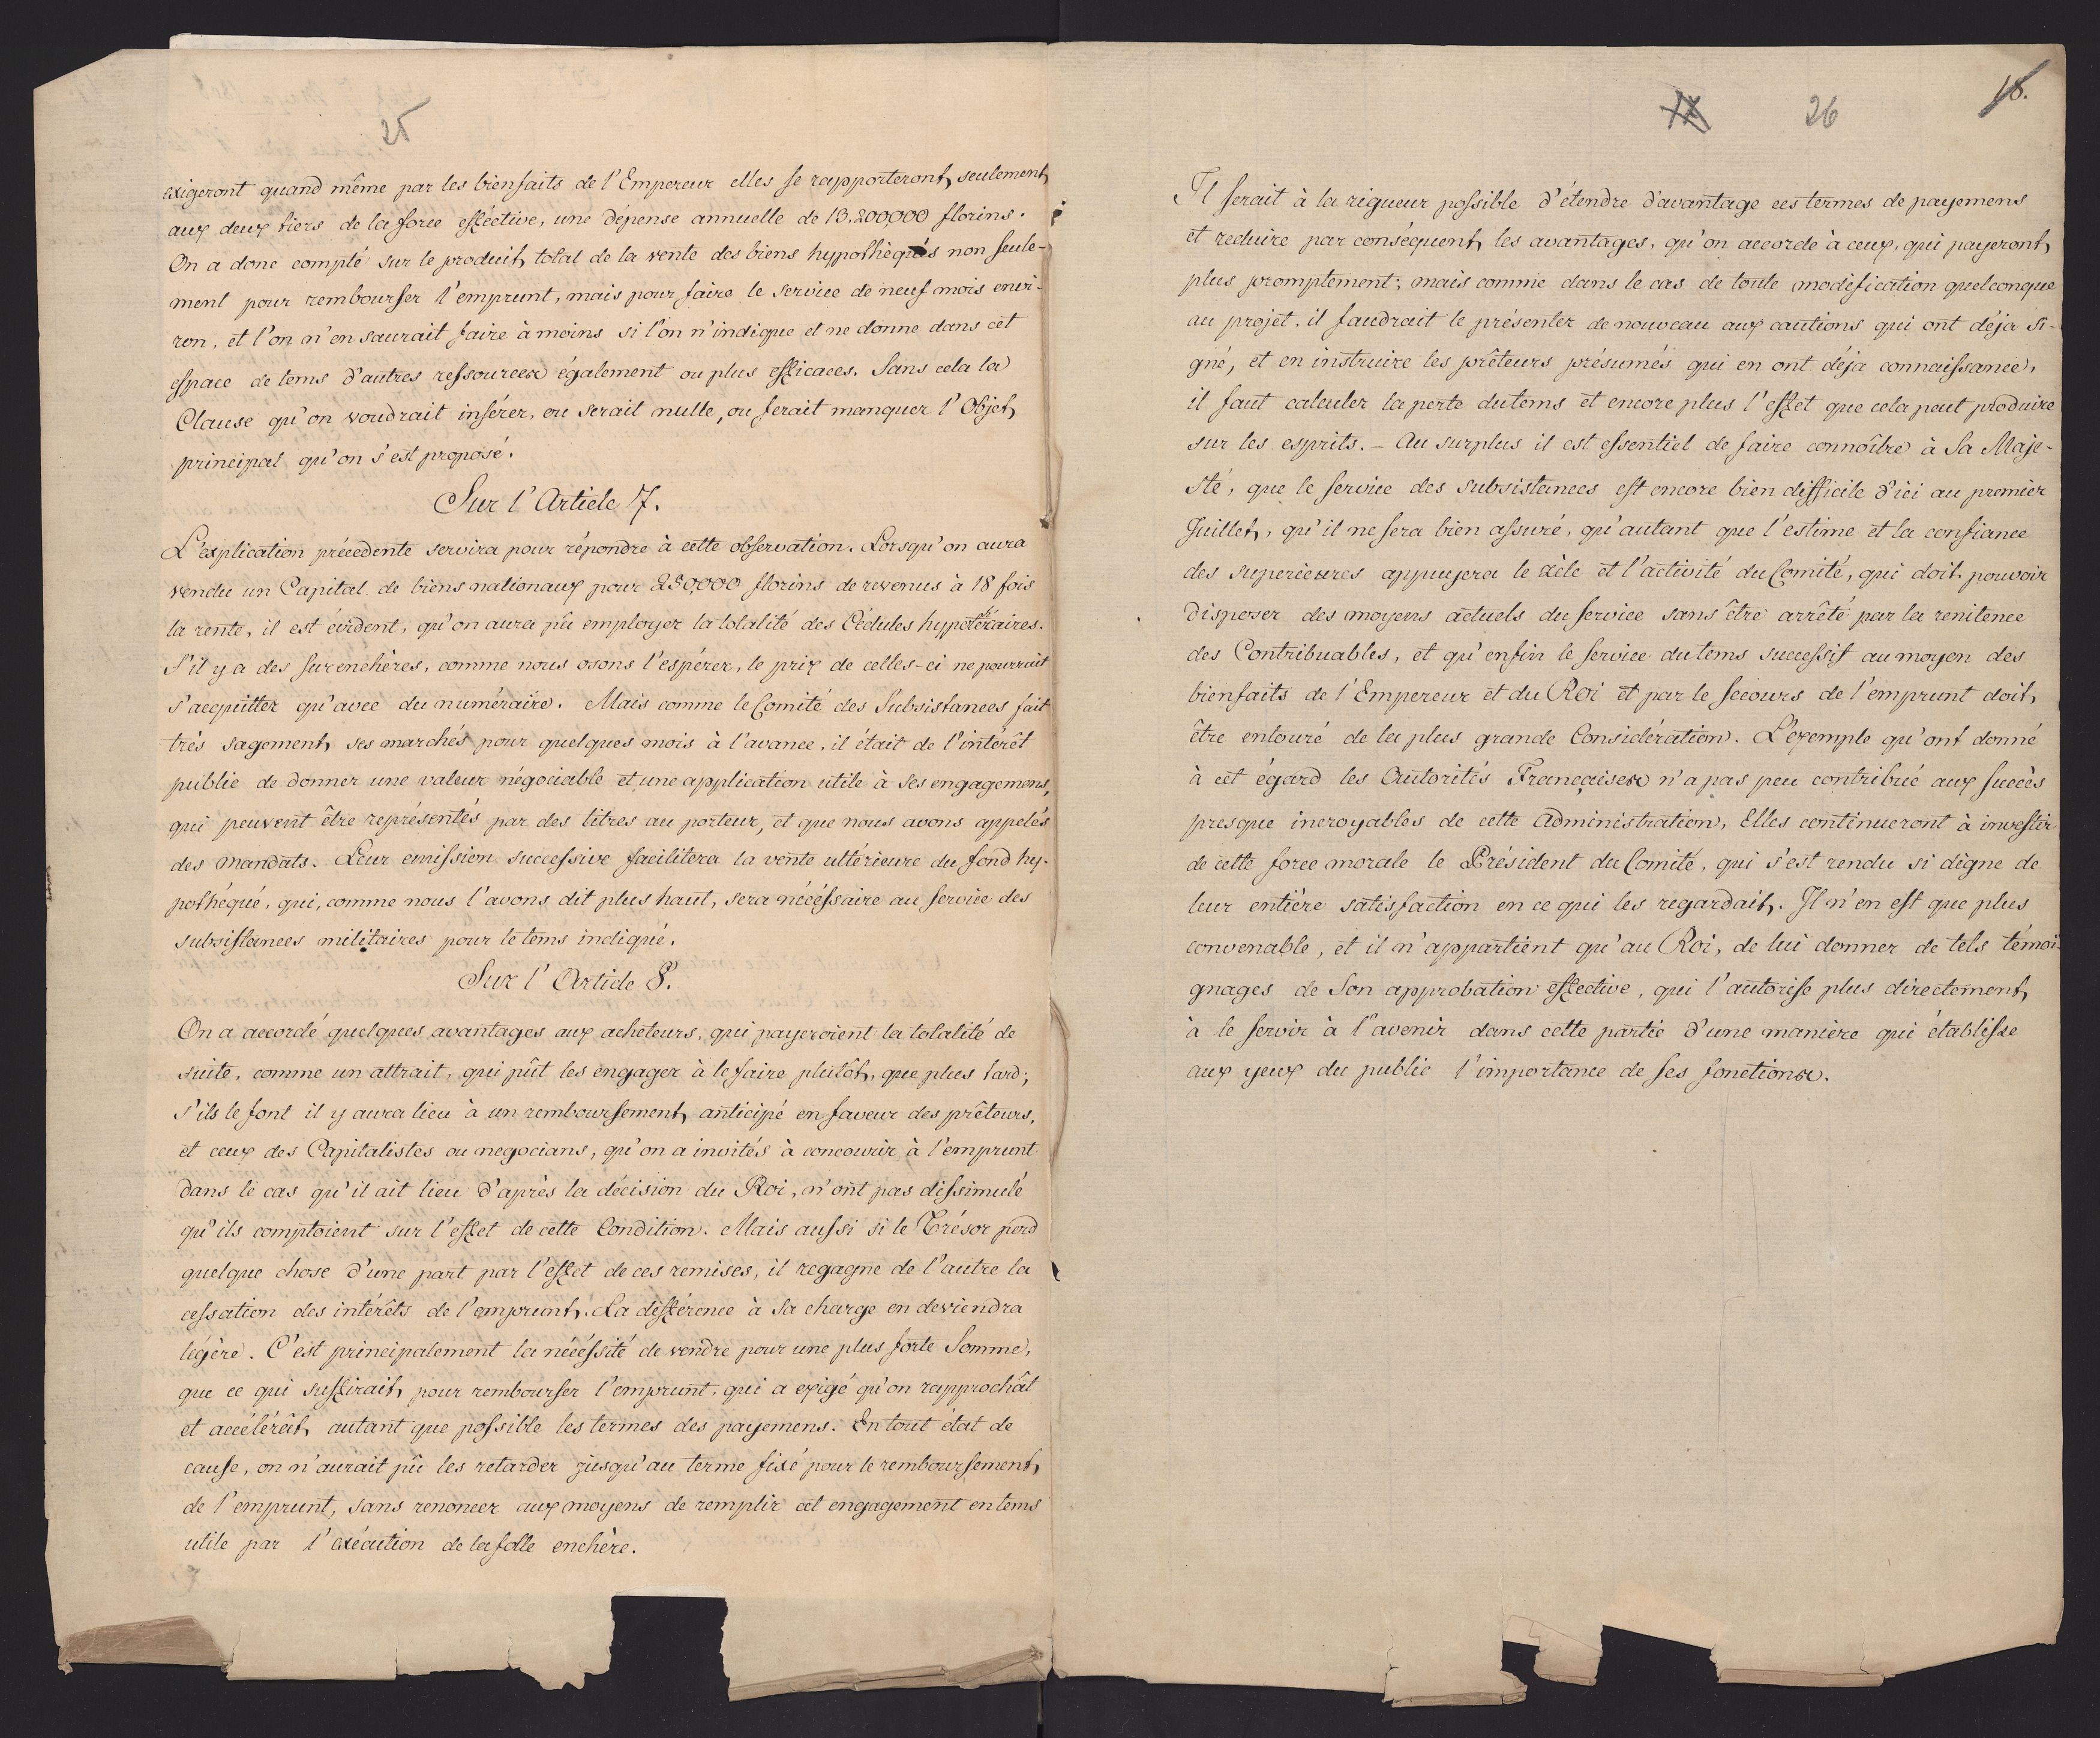 25
exigeront quand même par les bienfaits de l'Empereur elles se rapporteront seulement
aux deux tiers de la force efféctive, une dépense annuelle de 13.200,000 florins.
On a donc compté sur le produit total de la vente des biens hypothèqués non seule-
ment pour rembourser l'emprunt, mais pour faire le service de neuf mois envi-
ron, et l'on n'en saurait faire à moins si l'on n'indique et ne donne dans cet
espace de tems d'autres ressources également ou plus efficaces. Sans cela la
Clause qu'on voudrait insérer, ou serait nulle, ou ferait manquer l'Objet
principal qu'on s'est proposé.
Sur l'Article 7.
L'explication précedente servira pour répondre à cette observation. Lorsqu'on aura
vendu un Capital de biens nationaux pour 250,000 florins de revenus à 18 fois
la rente, il est évident, qu'on aura pû employer la totalité des Cédules hypotécaires.
S'il y a des surenchères, comme nous osons l'espérer, le prix de celles-ci ne pourrait
s'acquitter qu'avec du numéraire. Mais comme le Comité des Subsistances fait
très sagement ses marchés pour quelques mois à l'avance, il était de l'intérêt
public de donner une valeur négociable et une application utile à ses engagemens,
qui peuvent être représentés par des titres au porteur, et que nous avons appelés
des mandats. Leur emission successive facilitera la vente ultérieure du fond hy-
pothéqué, qui, comme nous l'avons dit plus haut, sera nécéssaire au service des
subsistances militaires pour le tems indiqué.
Sur l'Article 8.
On a accordé quelques avantages aux acheteurs, qui payeroient la totalité de
suite, comme un attrait, qui pût les engager à le faire plutôt, que plus tard;
s'ils le font il y aura lieu à un remboursement anticipé en faveur des prêteurs,
et ceux des Capitalistes ou negocians, qu'on a invités à concourir à l'emprunt
dans le cas qu'il ait lieu d'après la décision du Roi, n'ont pas dissimulé
qu'ils comptoient sur l'effet de cette Condition. Mais aussi si le Trésor perd
quelque chose d'une part par l'effet de ces remises, il regagne de l'autre la
cessation des intérêts de l'emprunt. La différence à sa charge en deviendra
légère. C'est principalement la nécéssité de vendre pour une plus forte Somme,
que ce qui suffirait pour rembourser l'emprunt, qui a exigé qu'on rapprochât
et accélérât autant que possible les termes des payemens. En tout état de
cause, on n'aurait pû les retarder jusqu'au terme fixé pour le remboursement
de l'emprunt, sans renoncer aux moyens de remplir cet engagement en tems
utile par l'exécution de la folle enchère.
17
26
18.
Il serait à la rigueur possible d'étendre d'avantage ces termes de payemens
et reduire par conséquent les avantages, qu'on accorde à ceux, qui payeront
plus promptement; mais comme dans le cas de toute modification quelconque
au projet, il faudrait le présenter de nouveau aux cautions qui ont déja si-
gné, et en instruire les prêteurs présumés qui en ont déja connaissance,
il faut calculer la perte du tems et encore plus l'effet que cela peut produire
sur les esprits. – Au surplus il est essentiel de faire connoître à Sa Maje-
sté, que le service des subsistances est encore bien difficile d'ici au premier
Juillet, qu'il ne sera bien assuré, qu'autant que l'estime et la confiance
des superieures appuyera le zèle et l'activité du Comité, qui doit pouvoir
disposer des moyens actuels du service sans être arrêté par la renitence
des Contribuables, et qu'enfin le service du tems successif au moyen des
bienfaits de l'Empereur et du Roi et par le secours de l'emprunt doit
être entouré de la plus grande Considération. L'exemple qu'ont donné
à cet égard les Autorités Françaises n'a pas peu contribué aux succès
presque incroyables de cette Administration, Elles continueront à investir
de cette force morale le Président du Comité, qui s'est rendu si digne de
leur entière satisfaction en ce qui les regardait. Il n'en est que plus
convenable, et il n'appartient qu'au Roi, de lui donner de tels témoi-
gnages de Son approbation effective, qui l'autorise plus directement
à le servir à l'avenir dans cette partie d'une manière qui établisse
aux yeux du public l'importance de ses fonctions.